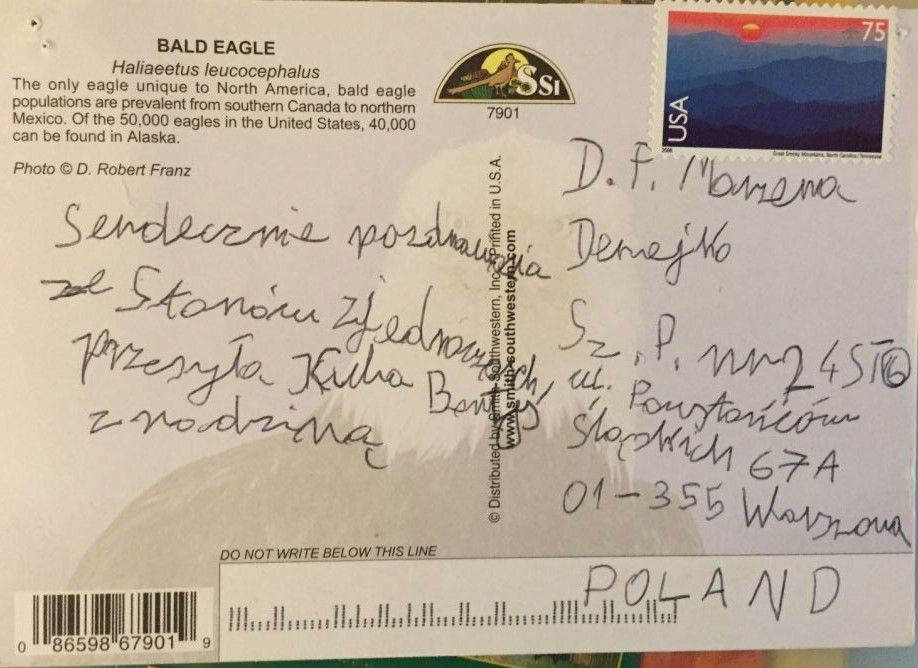 BALD EAGLE
Haliaeetus leucocephalus
The only eagle unique to North America, bald eagle
populations are prevalent from southern Canada to northern
Mexico. Of the 50,000 eagles in the United States, 40,000
can be found in Alaska.
Photo © D. Robert Franz
SSi
7901
75
USA
2006
Great Smoky Mountains, North Carolina/Tennessee
Serdecznie pozdrowienia
ze Stanów Zjednoczonych,
przesyła Kuba
z rodziną
© Distributed by Smith-Southwestern, Inc. Printed in U.S.A.
www.smith-southwestern.com
D. P. Marzena
Demejko
Sz. P. nr 245
ul. Powstańców
Śląskich 67A
01-355 Warszawa
POLAND
DO NOT WRITE BELOW THIS LINE
0 86598 67901 9